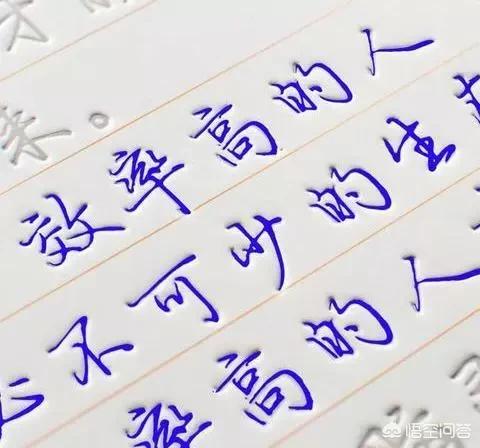 来。
效率高的人
不可少的生
率高的人
悟空问答